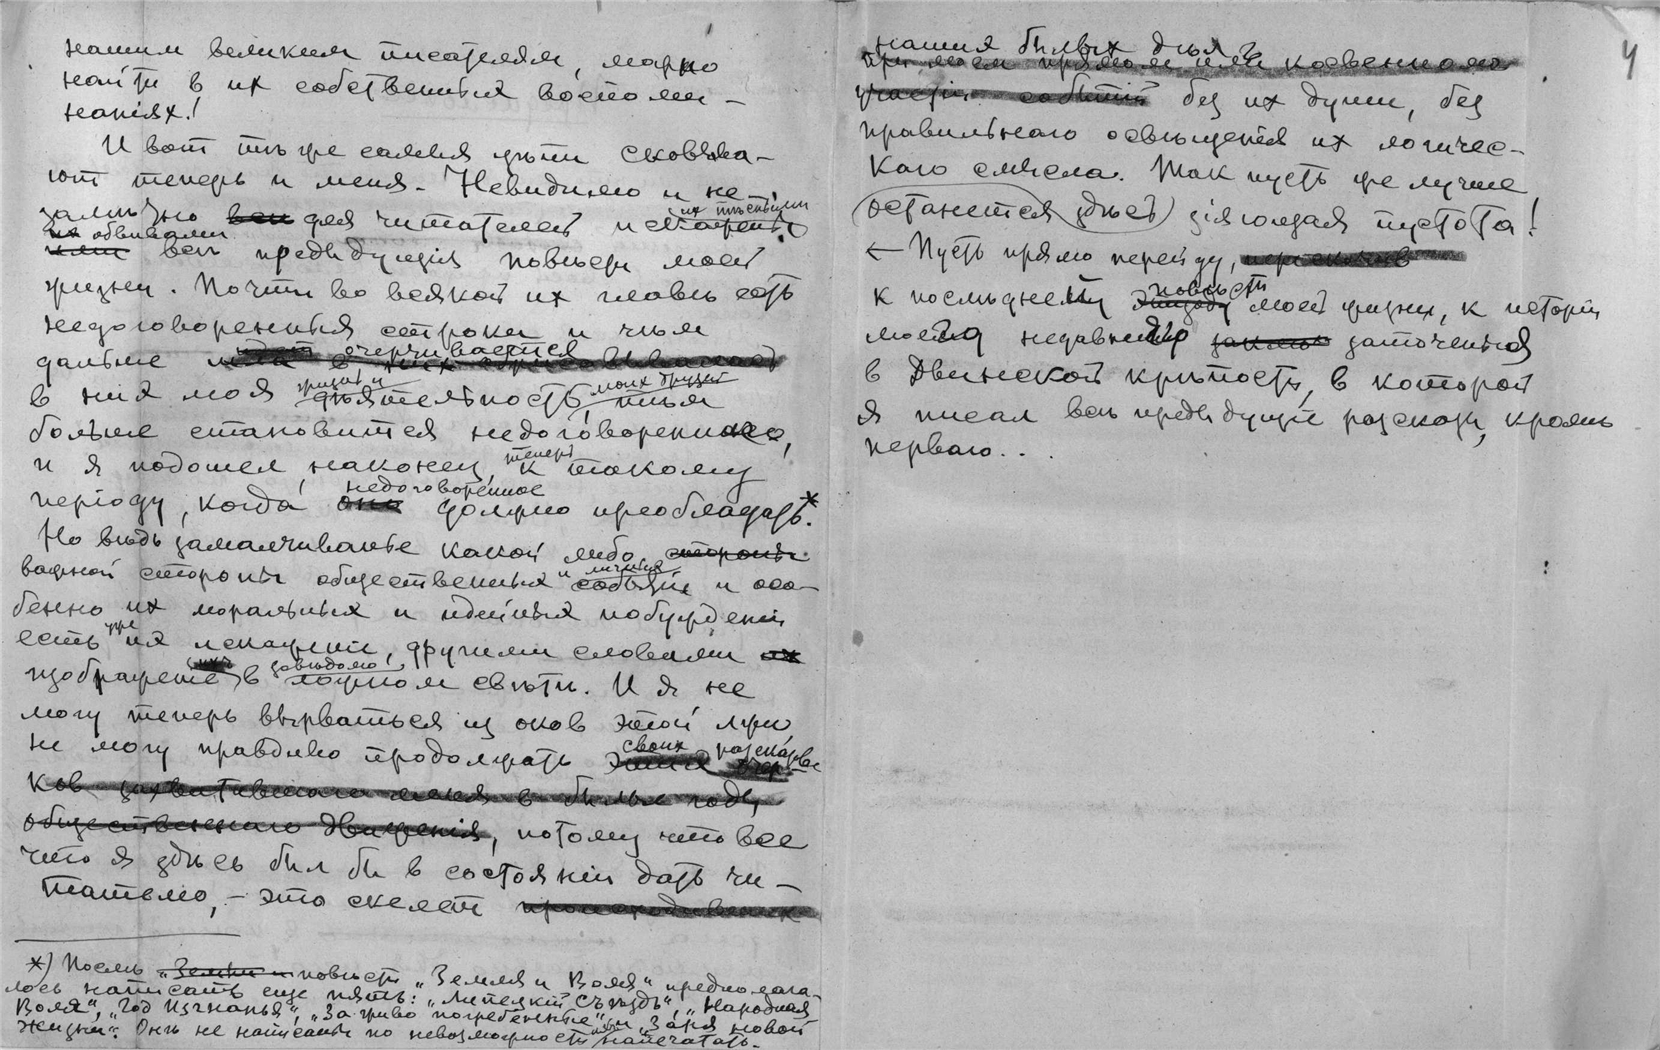 нашим великим писателям, можно
найти в их собственных воспоми-
наніях!
И вот тѣ же самыя цѣпи сковыва-
ют теперь и меня. Невидимо и не-
замѣтно для читателей
обвивали
всѣ предыдущія повѣсти моей
жизни. Почти во всякой их главѣ есть
недоговоренныя строки и чѣм
дальше очерчивается
в них моя дѣятельность, моих друзей тѣм
больше становится недоговореннаго,
и я подошел, наконец, теперь к такому
періоду, когда недоговоренное должно преобладать.*
Но вѣдь замалчиванье какой либо стороны
важной стороны общественных и личных событій и осо-
бенно их моральных и идейных побужденій
есть уже их искаженіе, другими словами
изображеніе их в завѣдомо ложном свѣтѣ. И я не
могу теперь вырваться из оков этой лжи,
не могу правдиво продолжать своих разсказов
ков захватившаго меня в былые годы
общественнаго движенія, потому что все
что я здѣсь был бы в состояніи дать чи-
тателю, - это скелет происходивших
*) Послѣ повѣсти „Земля и Воля“ предполага-
лось написать еще пять: „Липецкій Съѣздъ“, „Народная
Воля“, „Год Изгнанья“, „За живо погребенные“ и „Заря новой
Жизни“. Онѣ не написаны по невозможности напечатать.
4
наших былых дней
при моем прямом или косвенном
участіи событій без их души, без
правильнаго освѣщенія их логичес-
каго смысла. Так пусть же лучше
останется здѣсь зіяющая пустота!
← Пусть прямо перейду, перескочив
к послѣднему эпизоду повѣсти моей жизни, к исторіи
моего недавняго заточенія
в Двинской крѣпости, в которой
я писал всѣ предыдущіе разсказы, кромѣ
перваго...